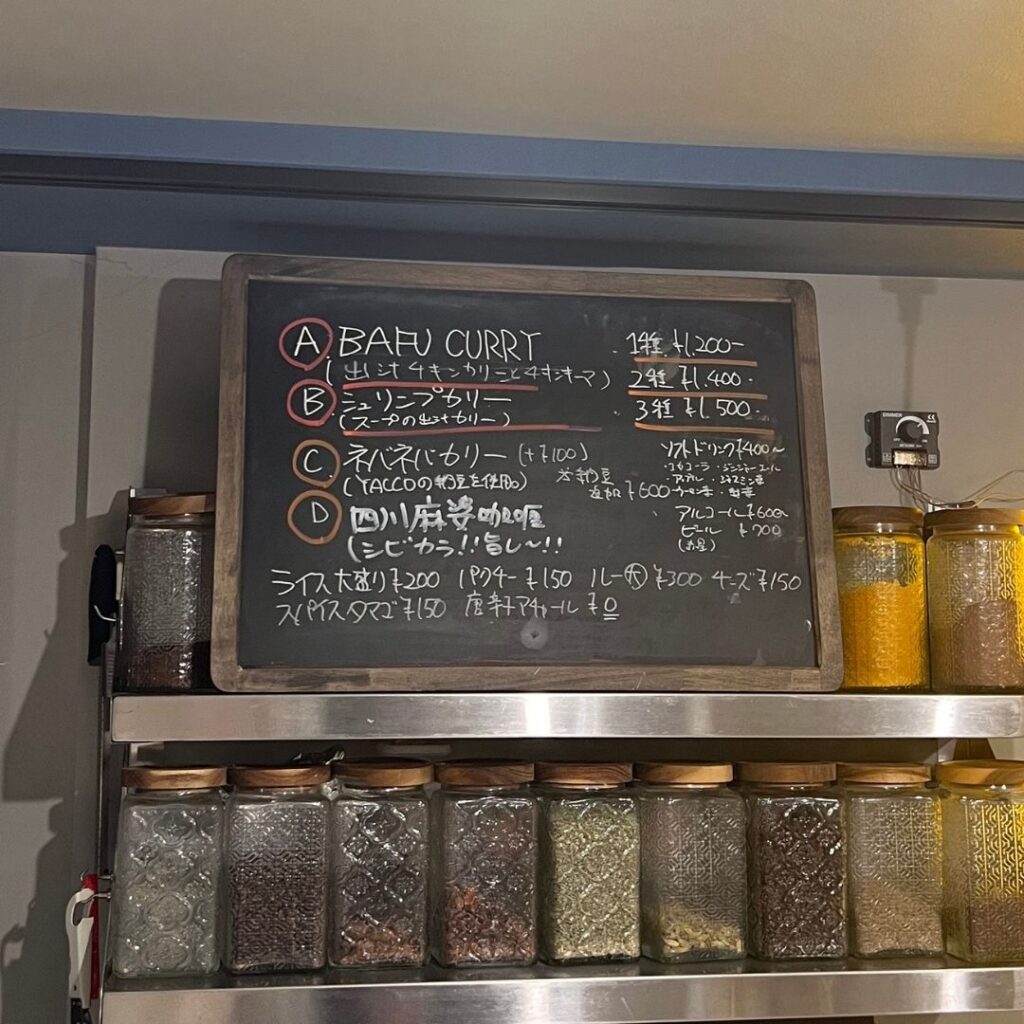 A BAFU CURRY
(出シ汁チキンカリーとチキンキーマ)
B シュリンプカリー
(スープの出汁カリー)
C ネバネバカリー (+¥100)
(YACCOの納豆を使用。)
納豆
追加 ¥600
D 四川麻婆咖喱
(シビカラ!!旨し〜!!
1種 ¥1,200-
2種 ¥1,400-
3種 ¥1,500-
ソフトドリンク¥400〜
・コカコーラ・ジンジャーエール
・ジャスミン茶
・ウーロン茶
アルコール¥600〜
ビール ¥700
ライス大盛り¥200 パクチー¥150 ルー大 ¥300 チーズ¥150
スパイスタマゴ¥150 唐辛子アチャール ¥0
DIMMER
CE